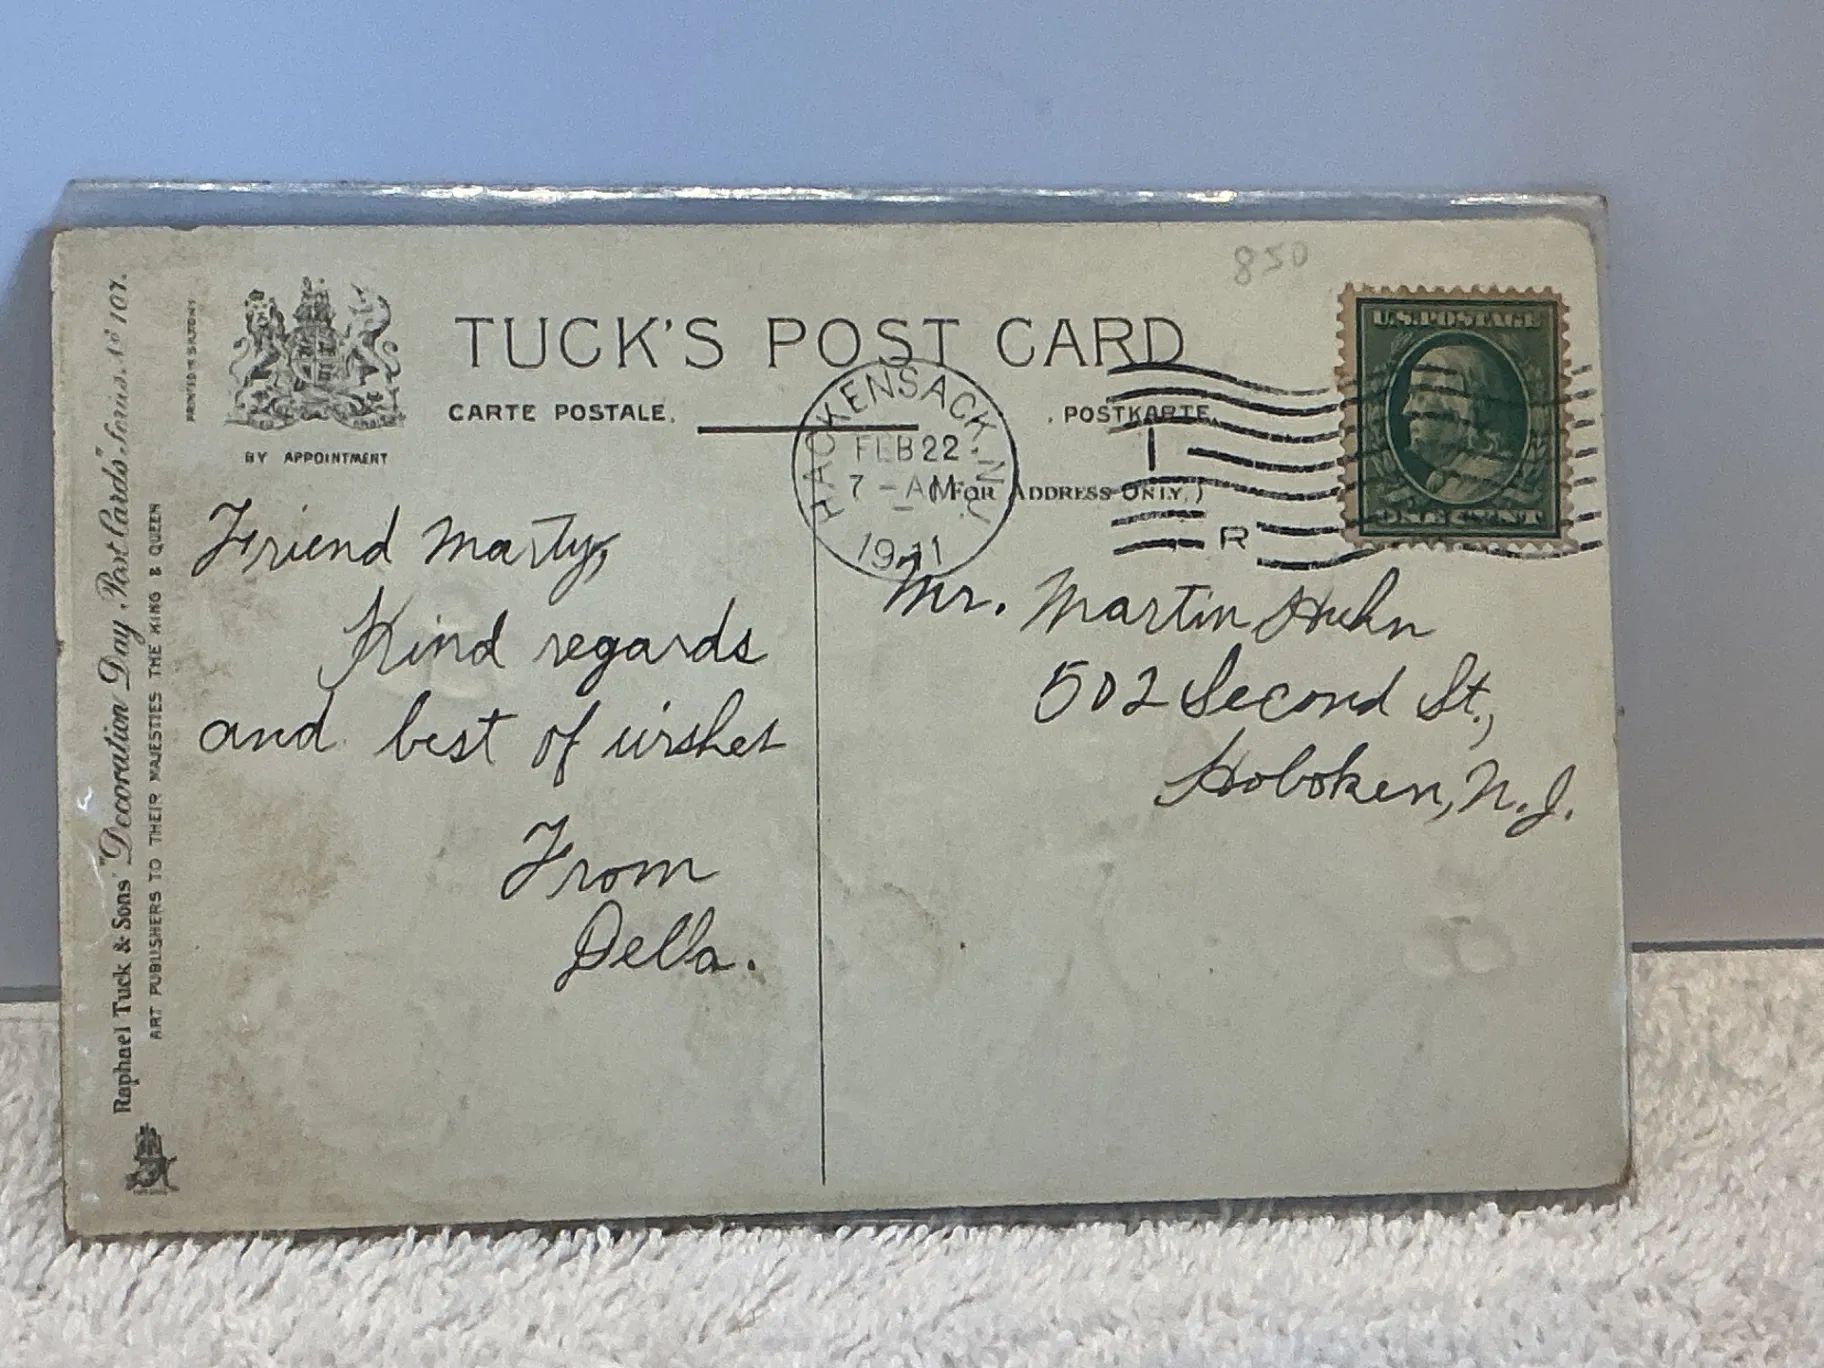 850
TUCK'S POST CARD
CARTE POSTALE.
POSTKARTE.
(FOR ADDRESS ONLY.)
BY APPOINTMENT
PRINTED IN SAXONY
Raphael Tuck & Sons' "Decoration Day" Post Cards" Series No 107.
ART PUBLISHERS TO THEIR MAJESTIES THE KING & QUEEN
HACKENSACK, N.J.
FEB 22
7 - AM
1911
R
U.S. POSTAGE
ONE CENT
Friend Marty,
Kind regards
and best of wishes
From
Della.
Mr. Martin Huhn
502 Second St.,
Hoboken, N.J.